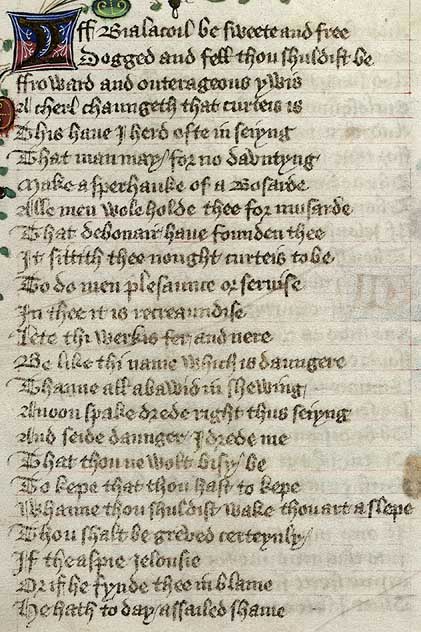 Iff Bialacoil be sweete and free
Dogged and fell thou shuldist be
ffroward and outerageous ywis
A cherl chaungeth that curteis is
This haue I herd ofte in seiyng
That man may / for no dauntyng
Make a sperhauke of a Bosarde
Alle men wole holde thee for musarde
That debonair haue founden thee
It sittith thee nought curteis to be
To do men plesaunce or seruise
In thee it is recreaundise
Lete thi werkis fer and nere
Be like thi name which is daungere
Thanne all abawid in shewing
Anoon spake drede right thus seiyng
And seide daunger / I drede me
That thou ne wolt bisy be
To kepe that thou hast to kepe
Whanne thou shuldist wake thou art a slepe
Thou shalt be greved certeynly /
If thee aspie Jelousie
Or if he fynde thee in blame
He hath to day assailed shame